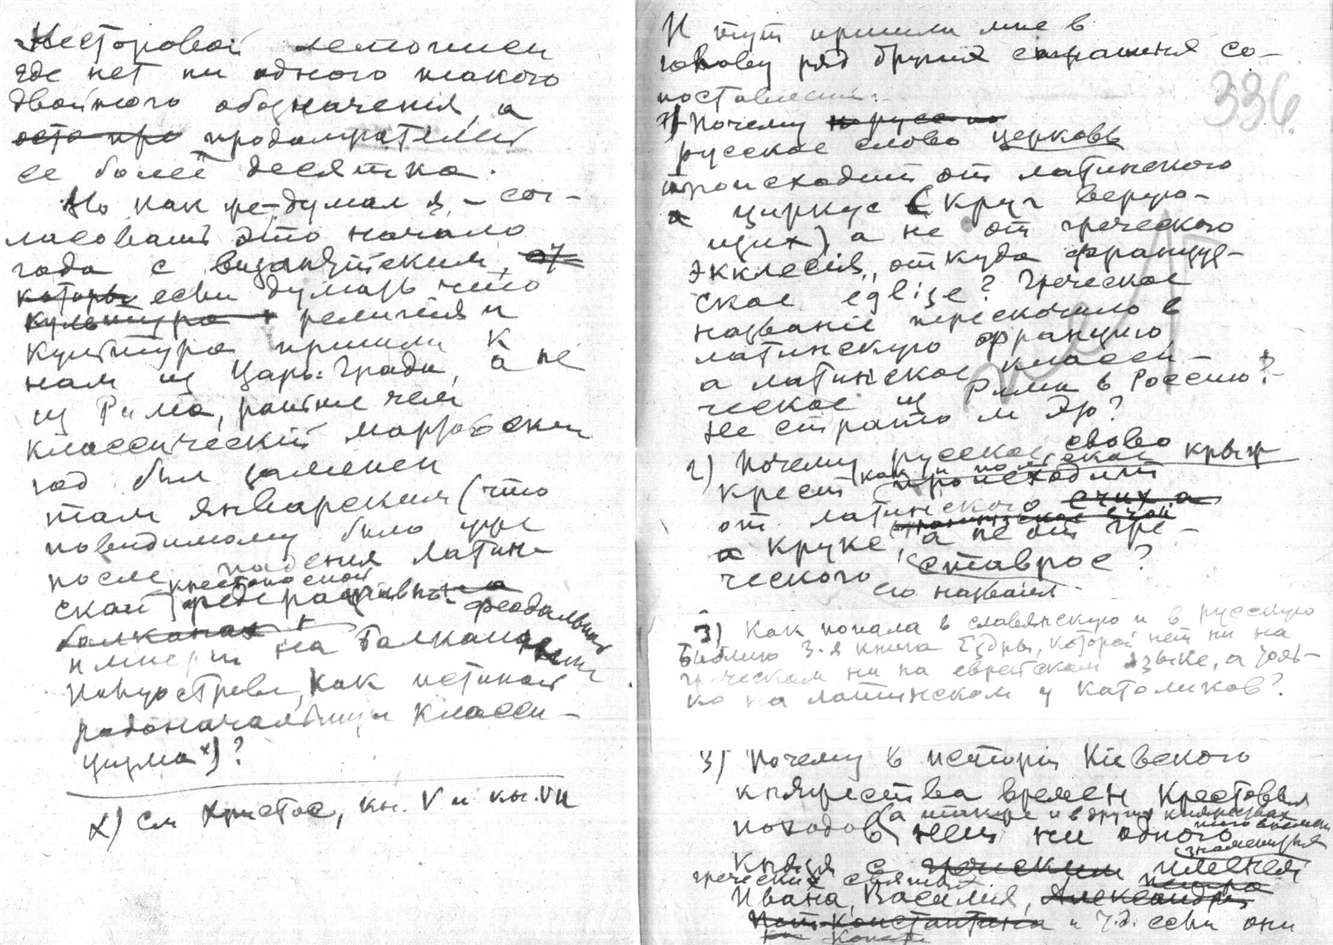 Несторовой летописи
где нет ни одного такого
двойного обозначения, а
продолжателей
ее более десятка.
Но как же, думал я, – сог-
ласовать это начало
года с византийским,
если думать что
религия и
культура пришли к
нам из Царь-Града, а не
из Рима, раньше чем
классический мартовский
год был заменен
там январским (что
повидимому было уже
после падения Латин-
ской крестоносной федеративно-феодальной
империи на Балканском
полуострове, как истинной
родоначальницы класси-
цизма х)?
х) см Христос, кн. V и кн. VII
И тут пришли мне в
голову ряд других страшных со-
поставлений:
336.
1) Почему
русское слово церковь
происходит от латинского
циркус (круг верую-
щих) а не от греческого
экклесия, откуда француз-
ское eglise? Греческое
название перескочило в
латинскую Францию
а латинское класси-
ческое из Рима в Россию?
Не странно ли это?
2) Почему русское слово крыж
крест (как и польское) происходит
от латинского
круке, а не от гре-
ческого ставрос?
его названия
3) Как попала в славянскую и в русскую
Библию 3-я книга Ездры, которой нет ни на
греческом ни на еврейском языке, а толь-
ко на латинском у католиков?
3) Почему в истории Киевского
княжества времен Крестовых
походов (а также и в других княжествах
того времени) нет ни одного
князя с именем знаменитых
греческих святых
Ивана, Василия,
и т.д. если они